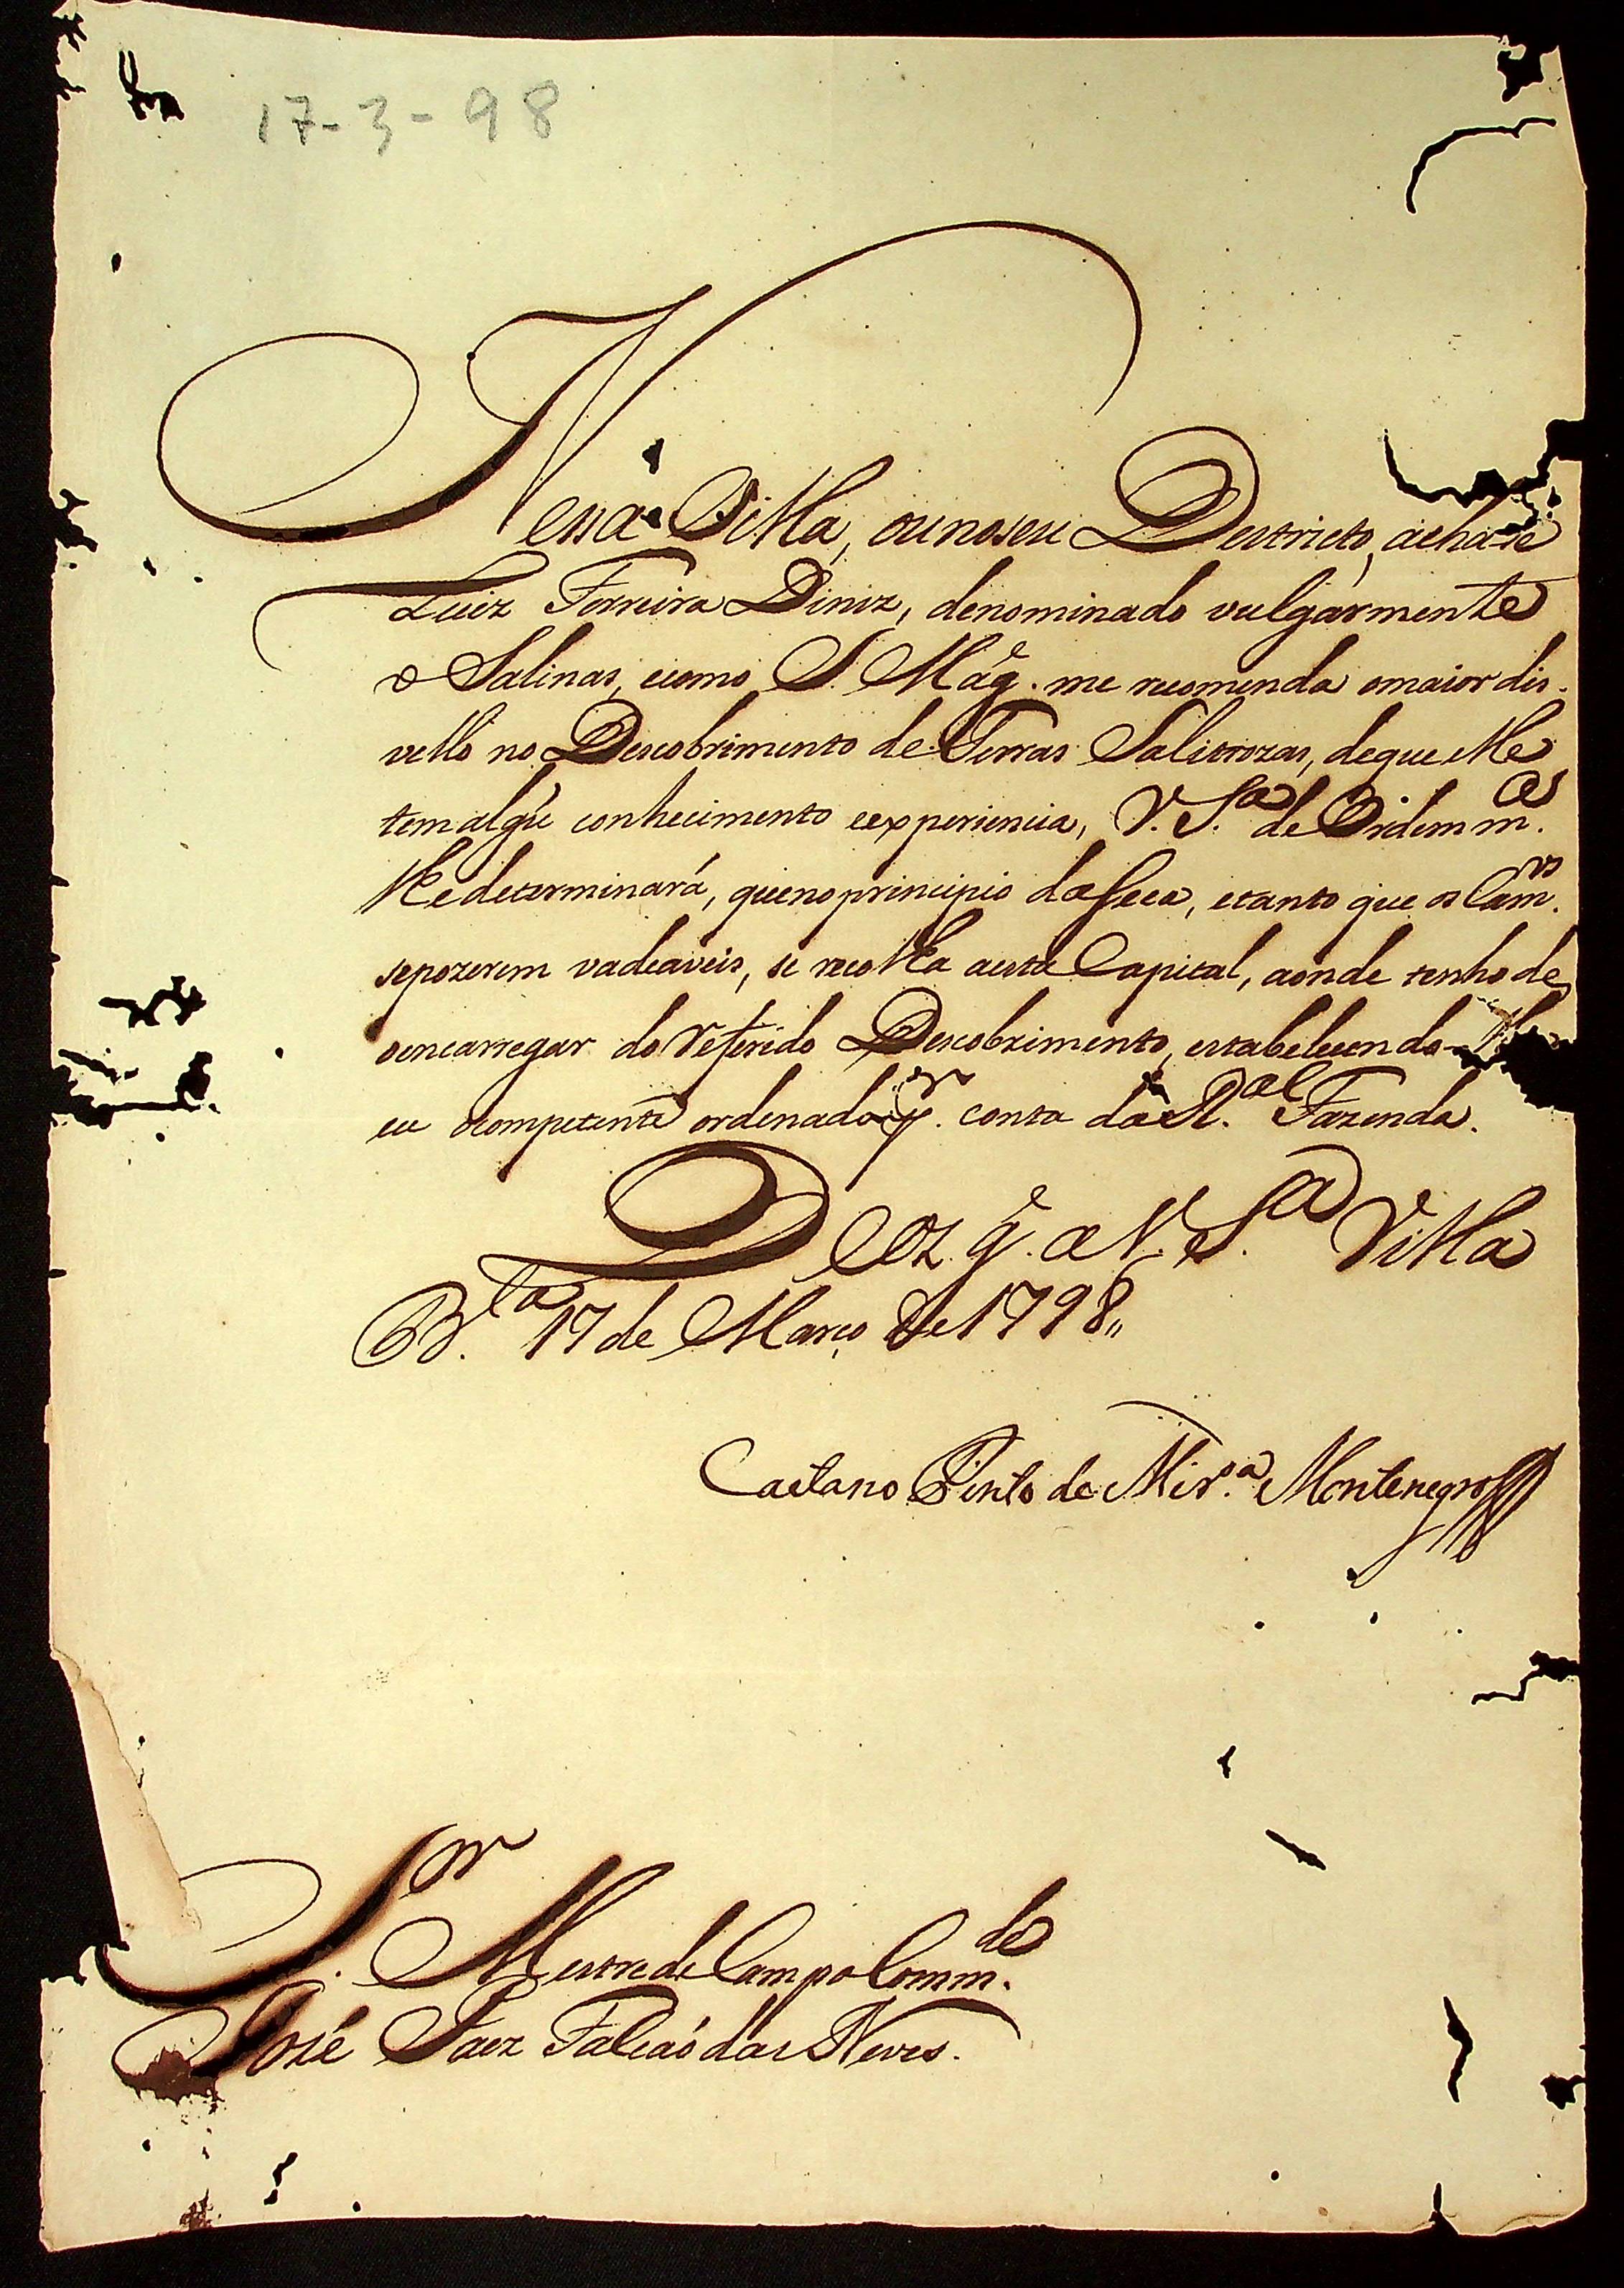 17-3-98
Nessa Villa, ou no seu Destricto, acha-se
Luiz Ferreira Diniz, denominado vulgarmente
o Salinas, e como S. Mag.e me recomenda o maior dis-
vello no Descobrimento de Terras Salitrozas, de que elle
tem algũ conhecimento e experiencia, V. S.a de Ordem m.a
lhe determinará, que no principio da seca, e tanto que os Cam.os
se pozerem vadeaveis, se recolha a esta Capital, aonde tenho de
o encarregar do referido Descobrimento, estabelecendo-lh
eu o competente ordenado p.r conta da R.al Fazenda.
Deoz g.e a V. S.a Villa
B.la 17 de Março de 1798,,
Caetano Pinto de Mir.a Montenegro
S.or Mestre de Campo Comm.de
José Paez Falcaõ das Neves.